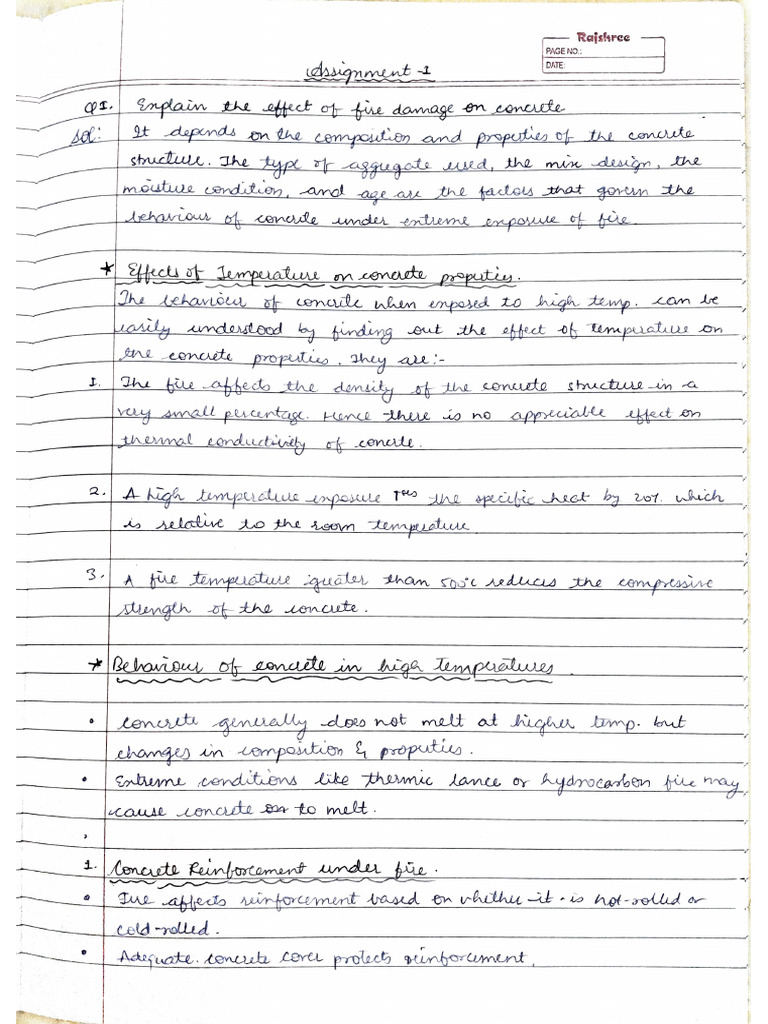 Rajshree
PAGE NO.:
DATE:
Assignment-1
Q1. Explain the effect of fire damage on concrete
Sol: It depends on the composition and properties of the concrete
structure. The type of aggregate used, the mix design, the
moisture condition, and age are the factors that govern the
behaviour of concrete under extreme exposure of fire.
* Effects of Temperature on concrete properties.
The behaviour of concrete when exposed to high temp. can be
easily understood by finding out the effect of temperature on
the concrete properties. They are:-
1. The fire affects the density of the concrete structure in a
very small percentage. Hence there is no appreciable effect on
thermal conductivity of concrete.
2. A high temperature exposure ↑ses the specific heat by 20%. which
is relative to the room temperature.
3. A fire temperature greater than 500°C reduces the compressive
strength of the concrete.
* Behaviour of concrete in high temperatures.
• Concrete generally does not melt at higher temp. but
changes in composition & properties.
• Extreme conditions like thermic lance or hydrocarbon fire may
cause concrete to melt.
1. Concrete Reinforcement under fire.
• Fire affects reinforcement based on whether it is hot-rolled or
cold-rolled.
• Adequate concrete cover protects reinforcement.